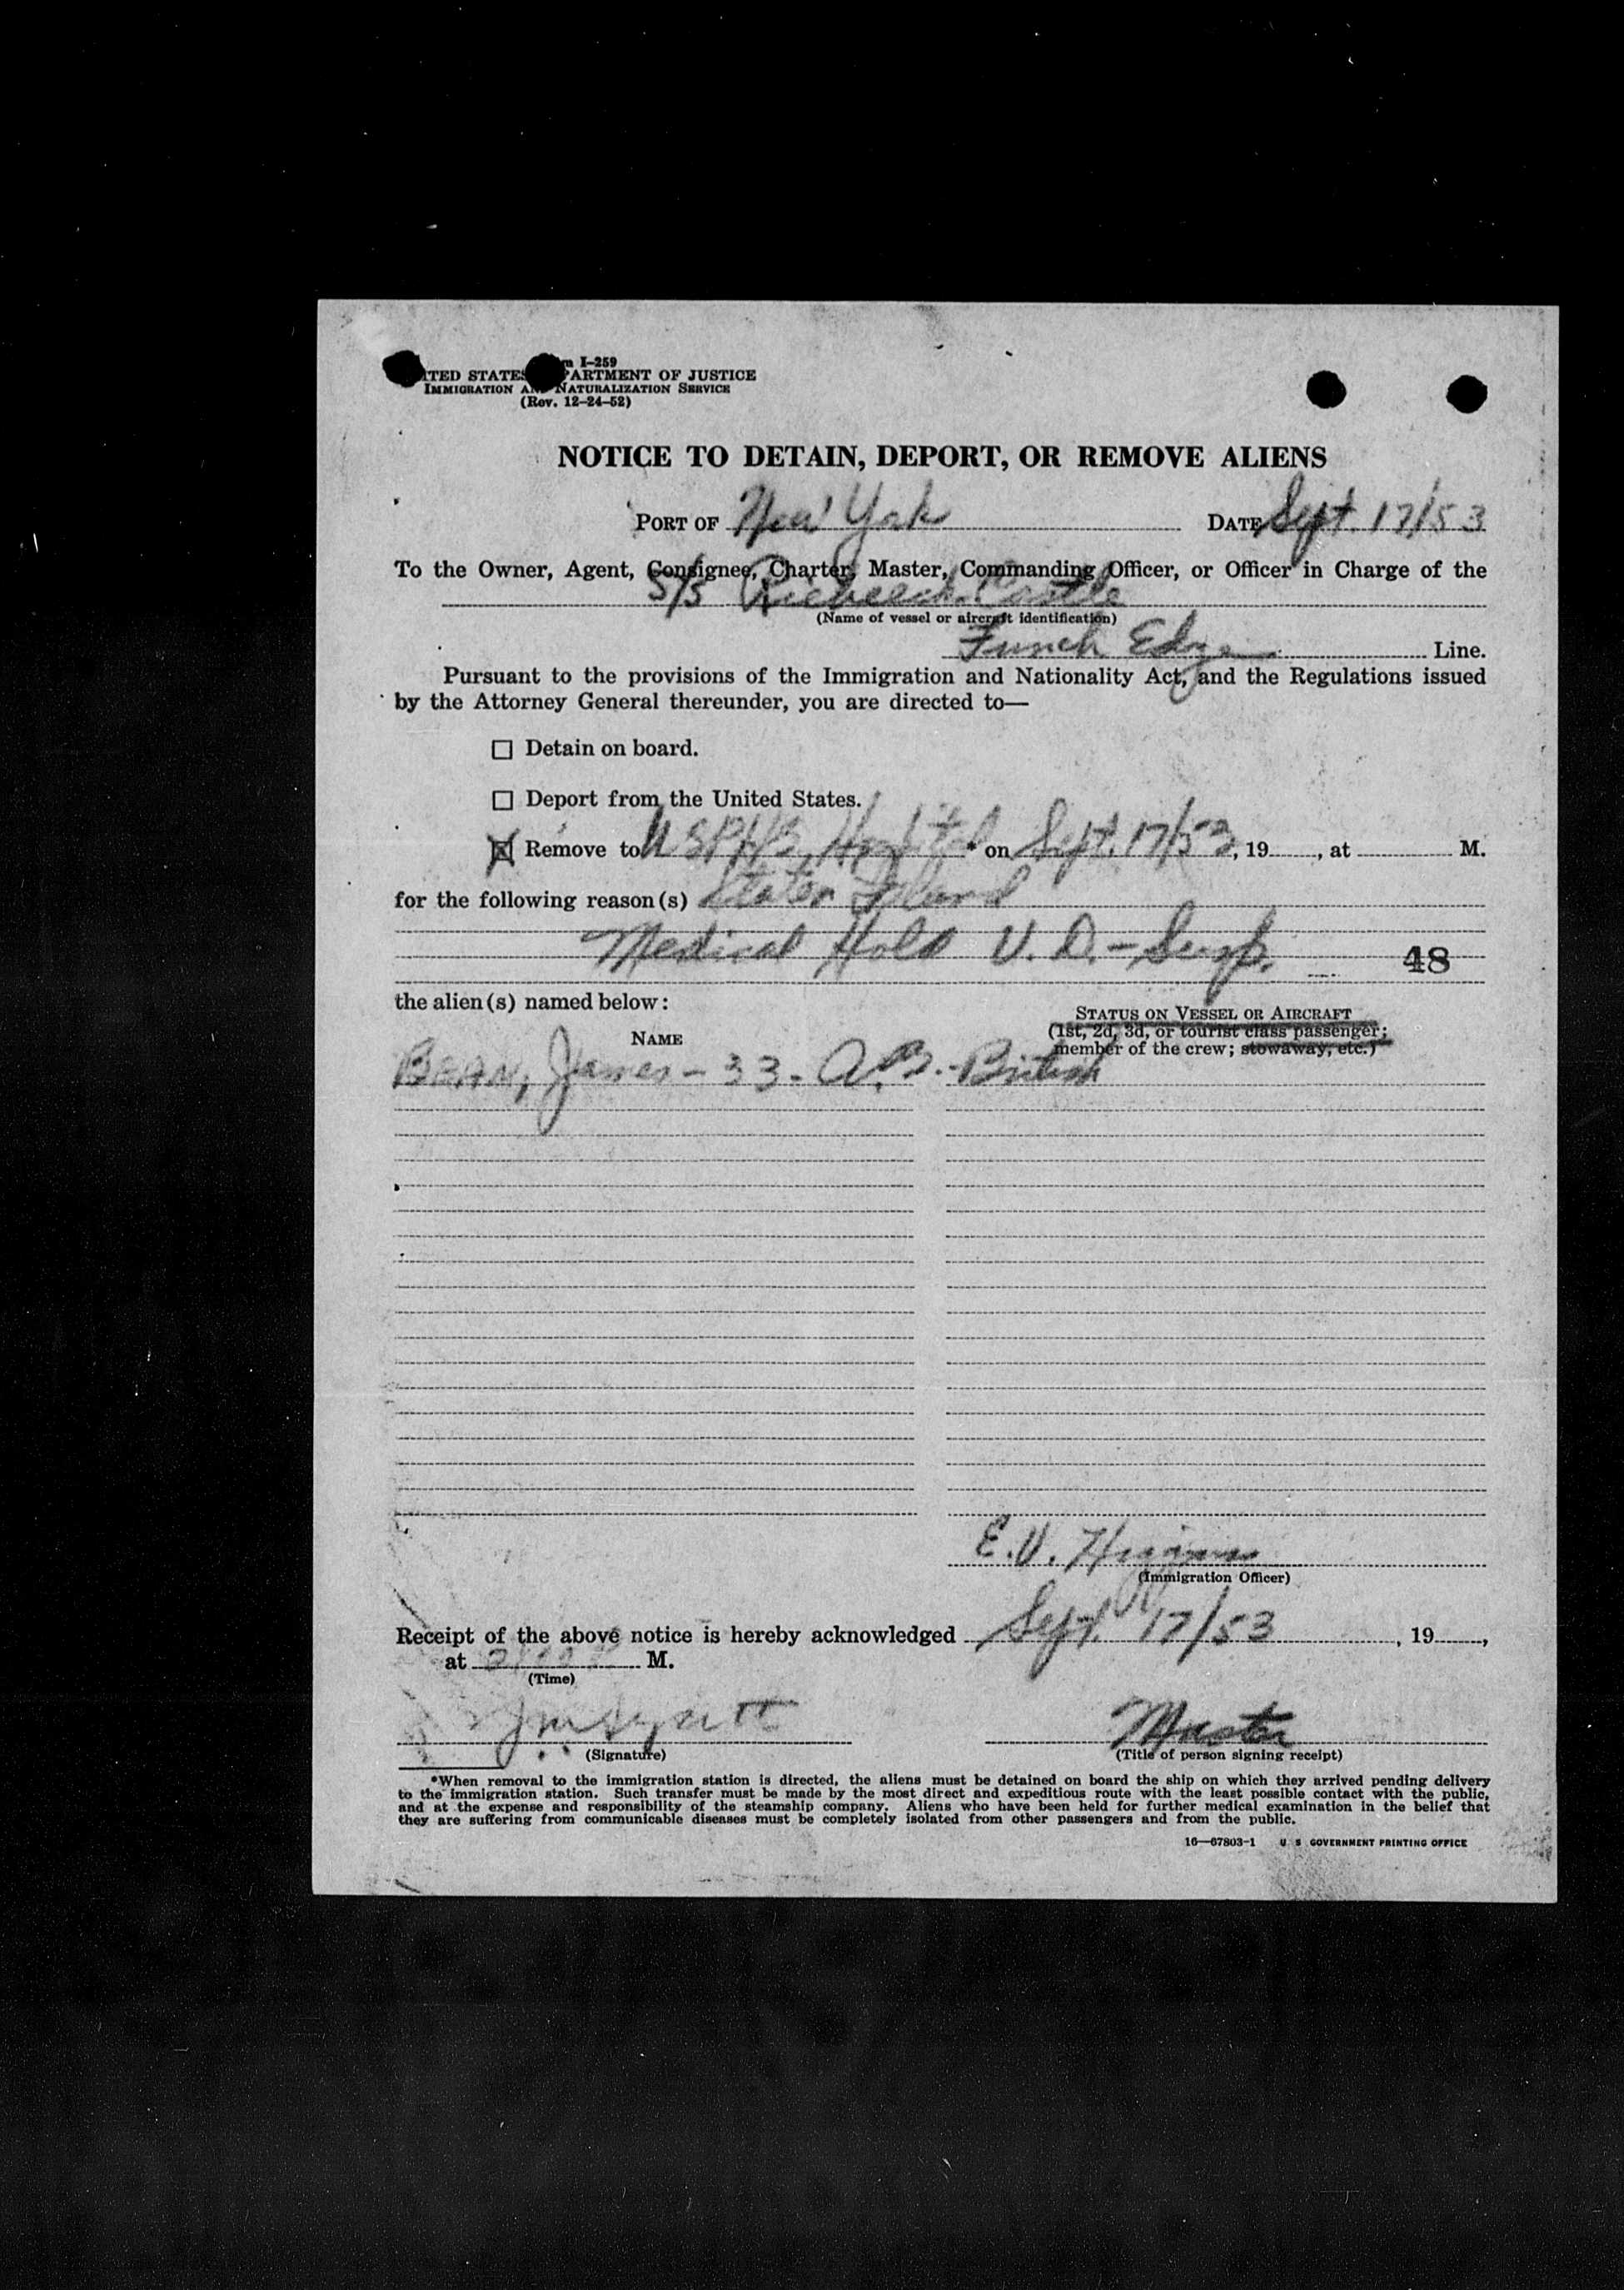 m I-259
ITED STATES PARTMENT OF JUSTICE
IMMIGRATION AND NATURALIZATION SERVICE
(Rev. 12-24-52)
NOTICE TO DETAIN, DEPORT, OR REMOVE ALIENS
PORT OF New York DATE Sept. 17/53
To the Owner, Agent, Consignee, Charter, Master, Commanding Officer, or Officer in Charge of the
S/S Castle
(Name of vessel or aircraft identification)
Funch Edye Line.
Pursuant to the provisions of the Immigration and Nationality Act, and the Regulations issued
by the Attorney General thereunder, you are directed to—
☐ Detain on board.
☐ Deport from the United States.
☒ Remove to USPHS Hospital * on Sept. 17/53, 19......, at ............ M.
for the following reason(s) Staten Island
Medical Hold V. D. - Susp. 48
the alien(s) named below:
NAME
STATUS ON VESSEL OR AIRCRAFT
(1st, 2d, 3d, or tourist class passenger;
member of the crew; stowaway, etc.)
BEAN, James - 33 - A.B. - British
E. V.
(Immigration Officer)
Receipt of the above notice is hereby acknowledged Sept. 17/53, 19......,
at M.
(Time)
Master
(Signature) (Title of person signing receipt)
*When removal to the immigration station is directed, the aliens must be detained on board the ship on which they arrived pending delivery
to the immigration station. Such transfer must be made by the most direct and expeditious route with the least possible contact with the public,
and at the expense and responsibility of the steamship company. Aliens who have been held for further medical examination in the belief that
they are suffering from communicable diseases must be completely isolated from other passengers and from the public.
16—67803-1 U. S. GOVERNMENT PRINTING OFFICE